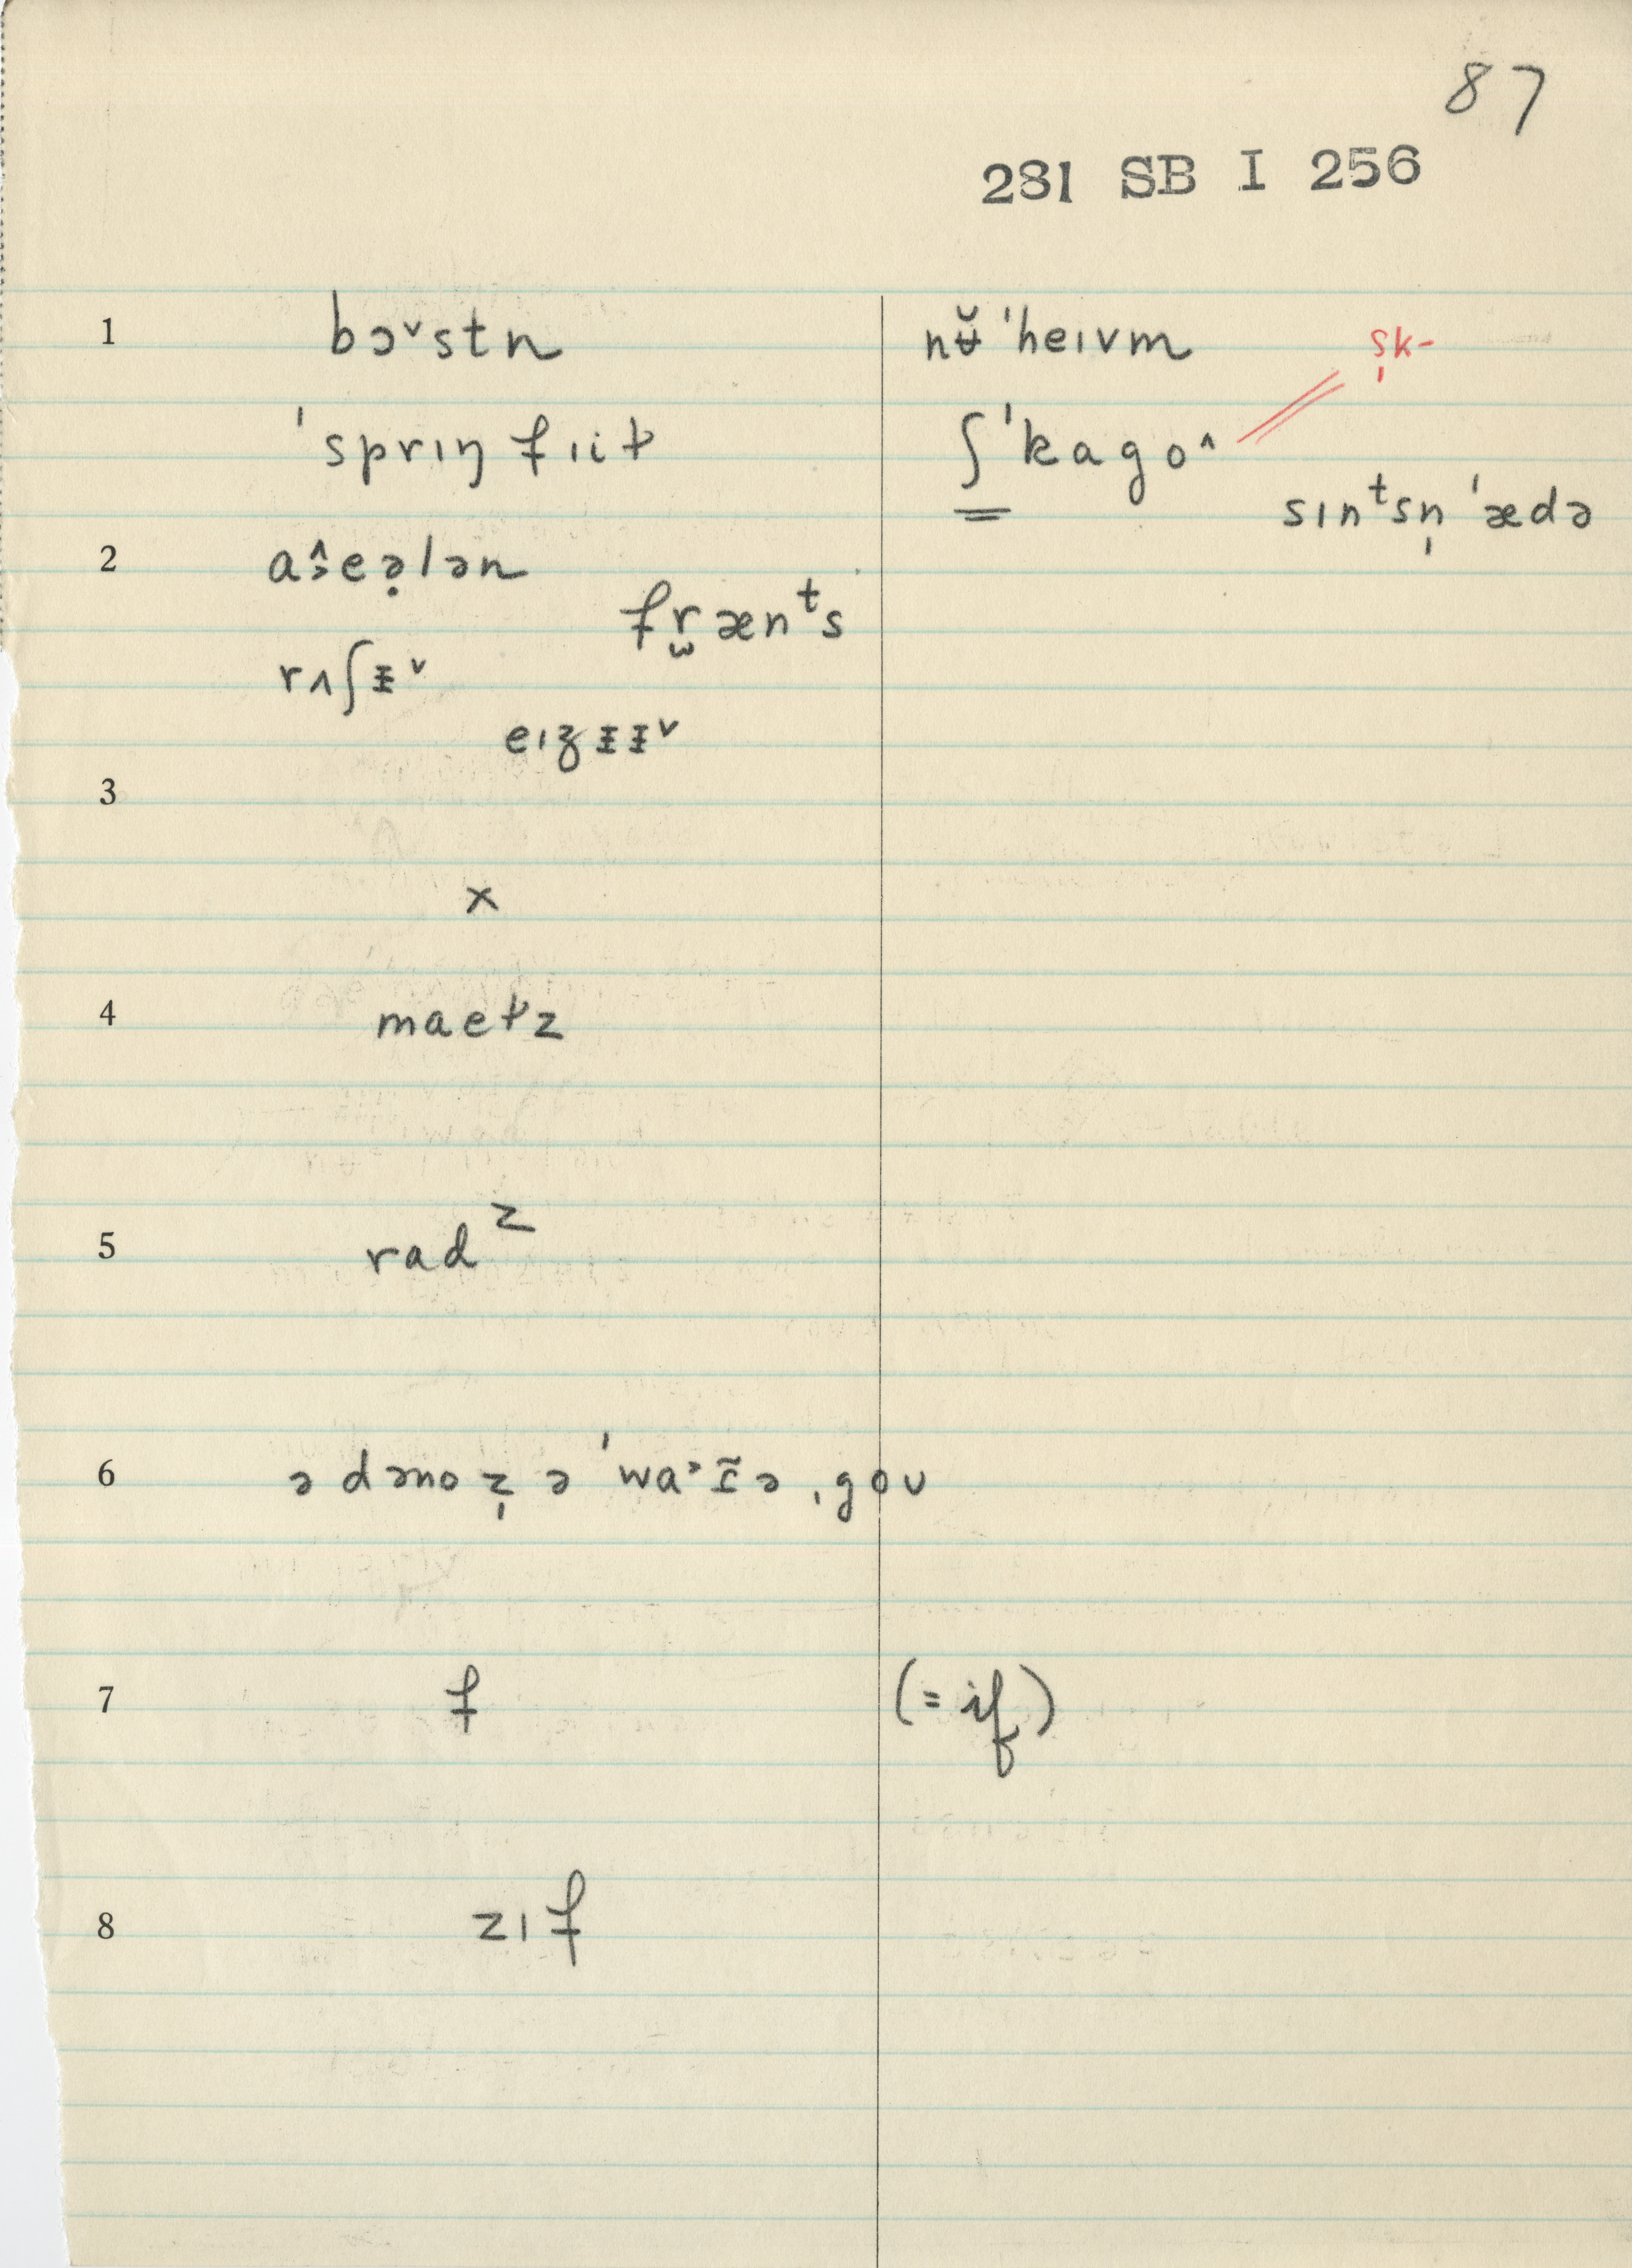 87
281 SB I 256
1 bɔ˅stn nʉ̆ˈheɪvm ṣk-
ˈsprɪŋfɪiɫ ʃˈkago˄
sɪnᵗsn̩ˈædə
2 aɪ̂eə̣lən
fr̫ænᵗs
rʌʃɪ̵˅
eɪʒɪ̵ɪ̵˅
3
x
4 maeɫz
5 radᶻ
6 ə dəno z̩ ə ˈwa˃ɪ̃ə ˌgoʊ
7 f (= if)
8 zɪf